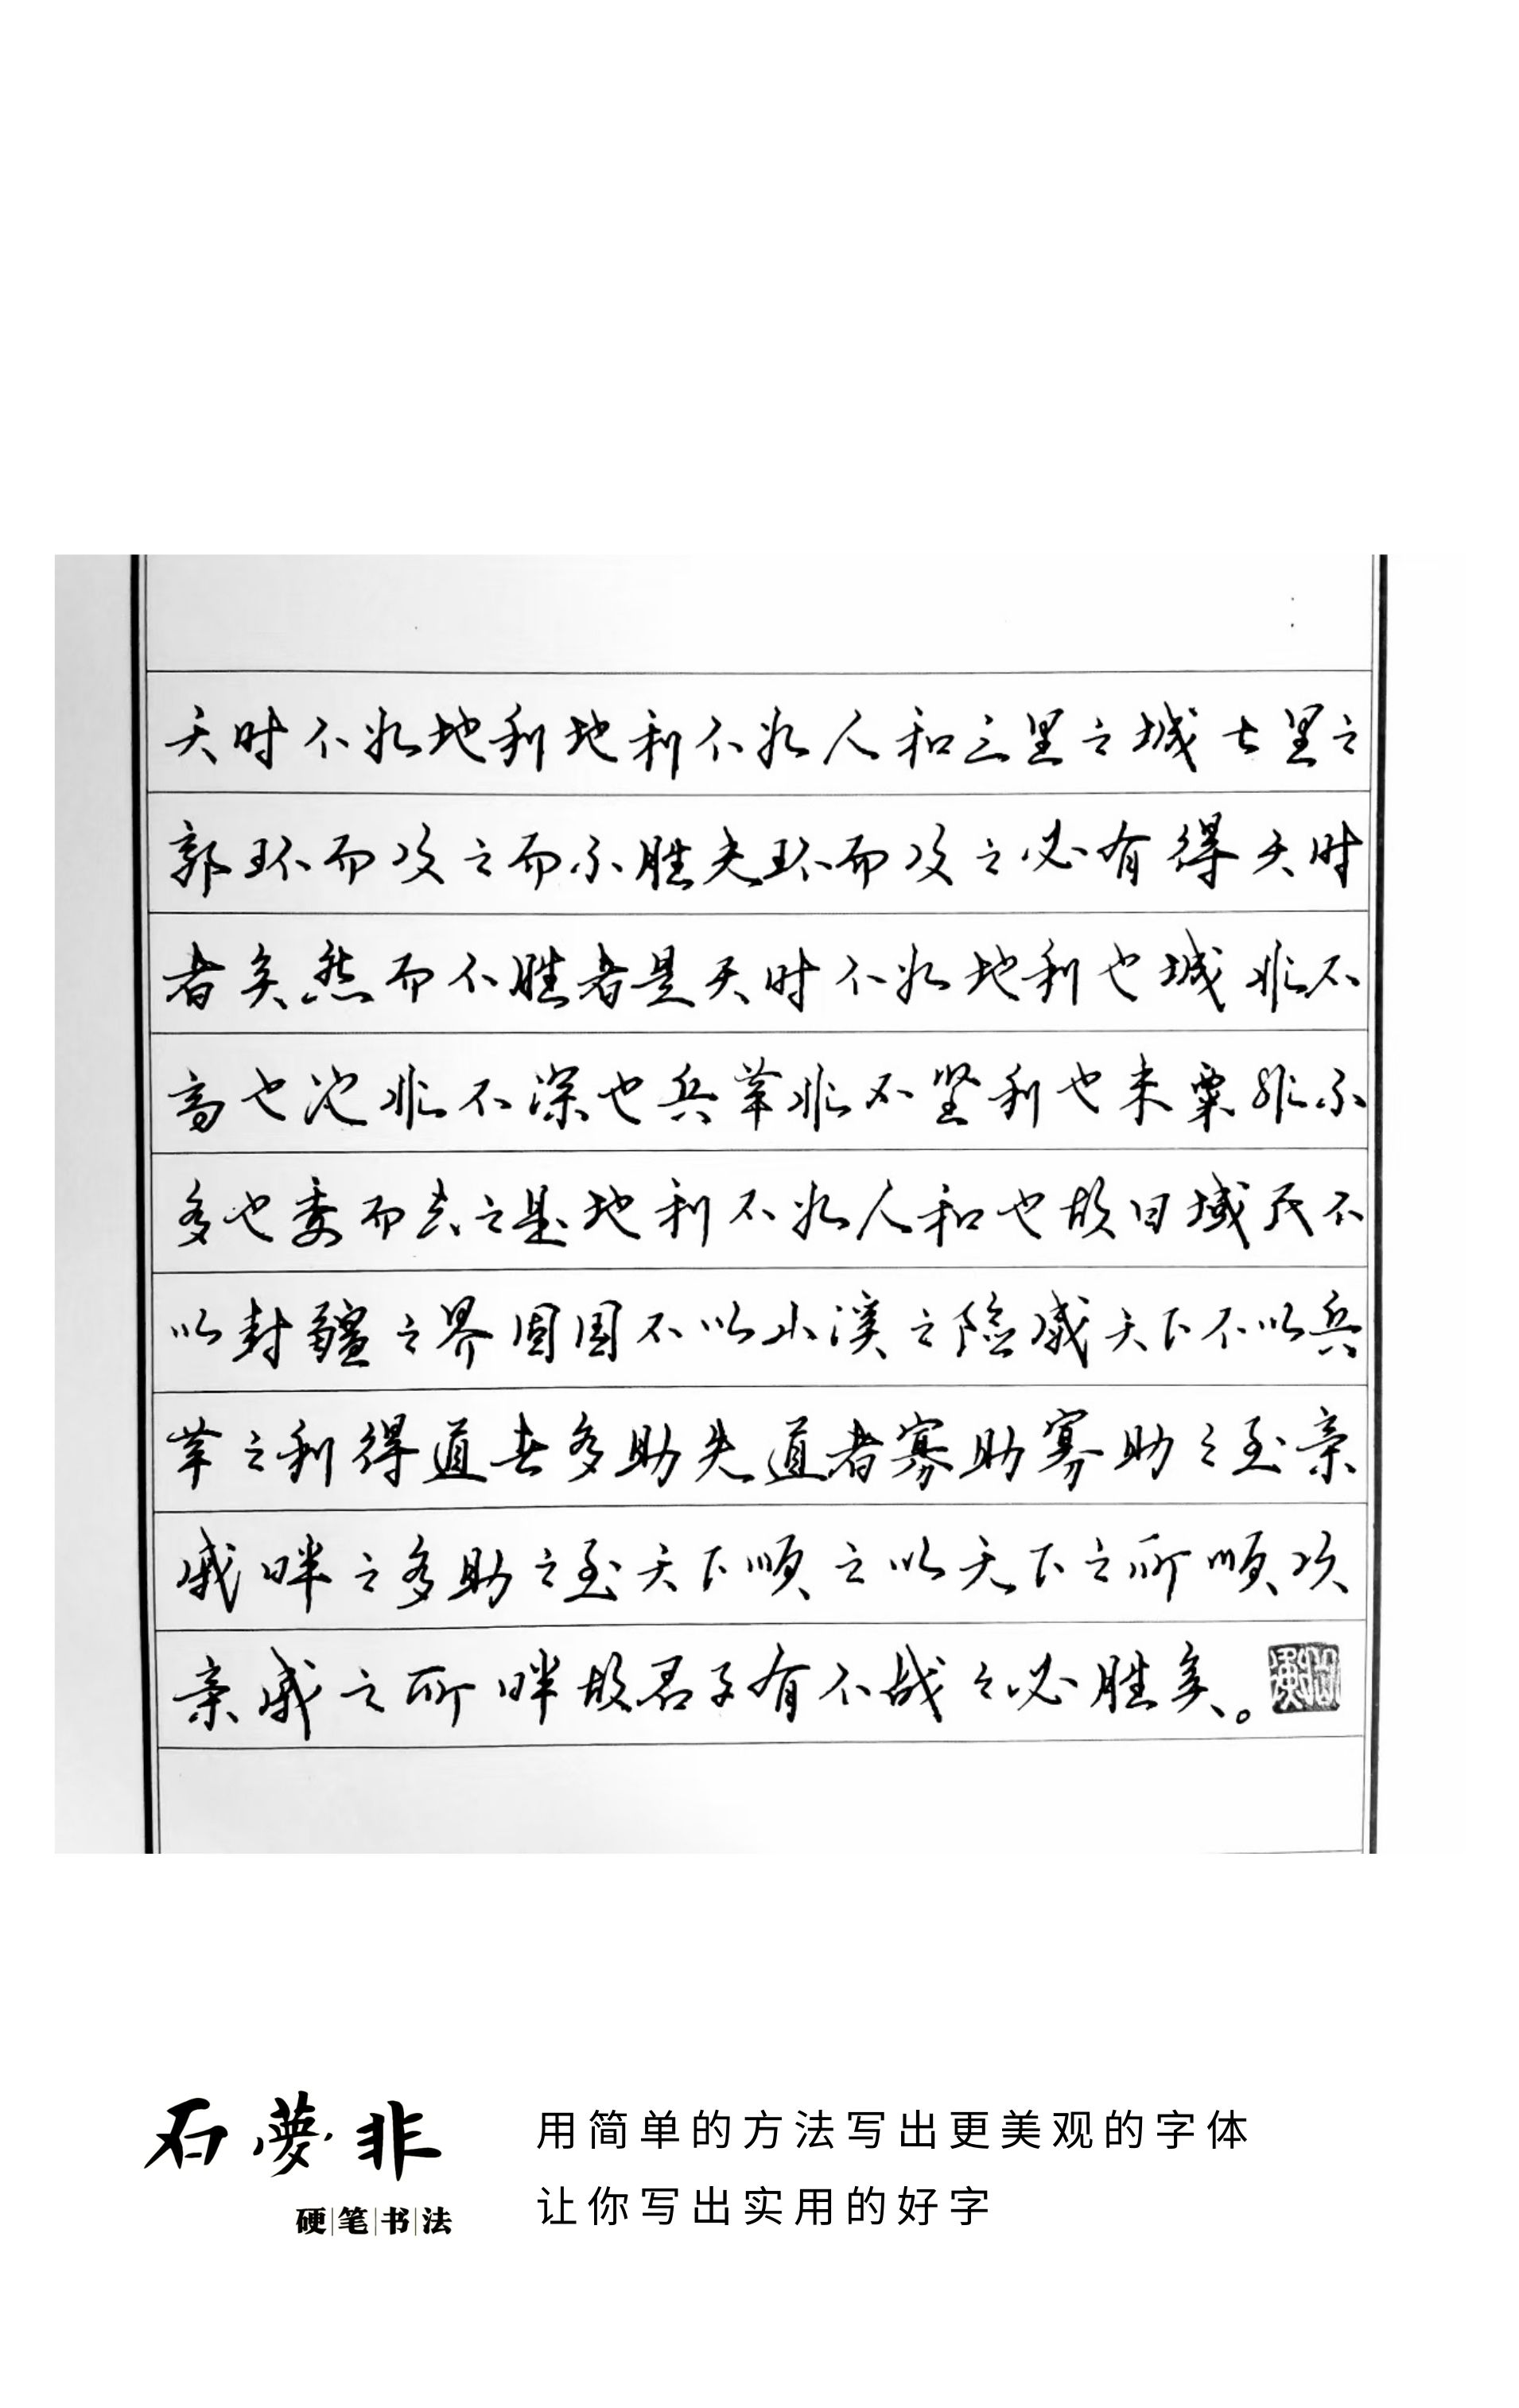 天时不如地利地利不如人和三里之城七里之
郭环而攻之而不胜夫环而攻之必有得天时
者矣然而不胜者是天时不如地利也城非不
高也池非不深也兵革非不坚利也米粟非不
多也委而去之是地利不如人和也故曰域民不
以封疆之界固国不以山溪之险威天下不以兵
革之利得道者多助失道者寡助寡助之至亲
戚畔之多助之至天下顺之以天下之所顺攻
亲戚之所畔故君子有不战战必胜矣。
石夢非
硬笔书法
用简单的方法写出更美观的字体
让你写出实用的好字